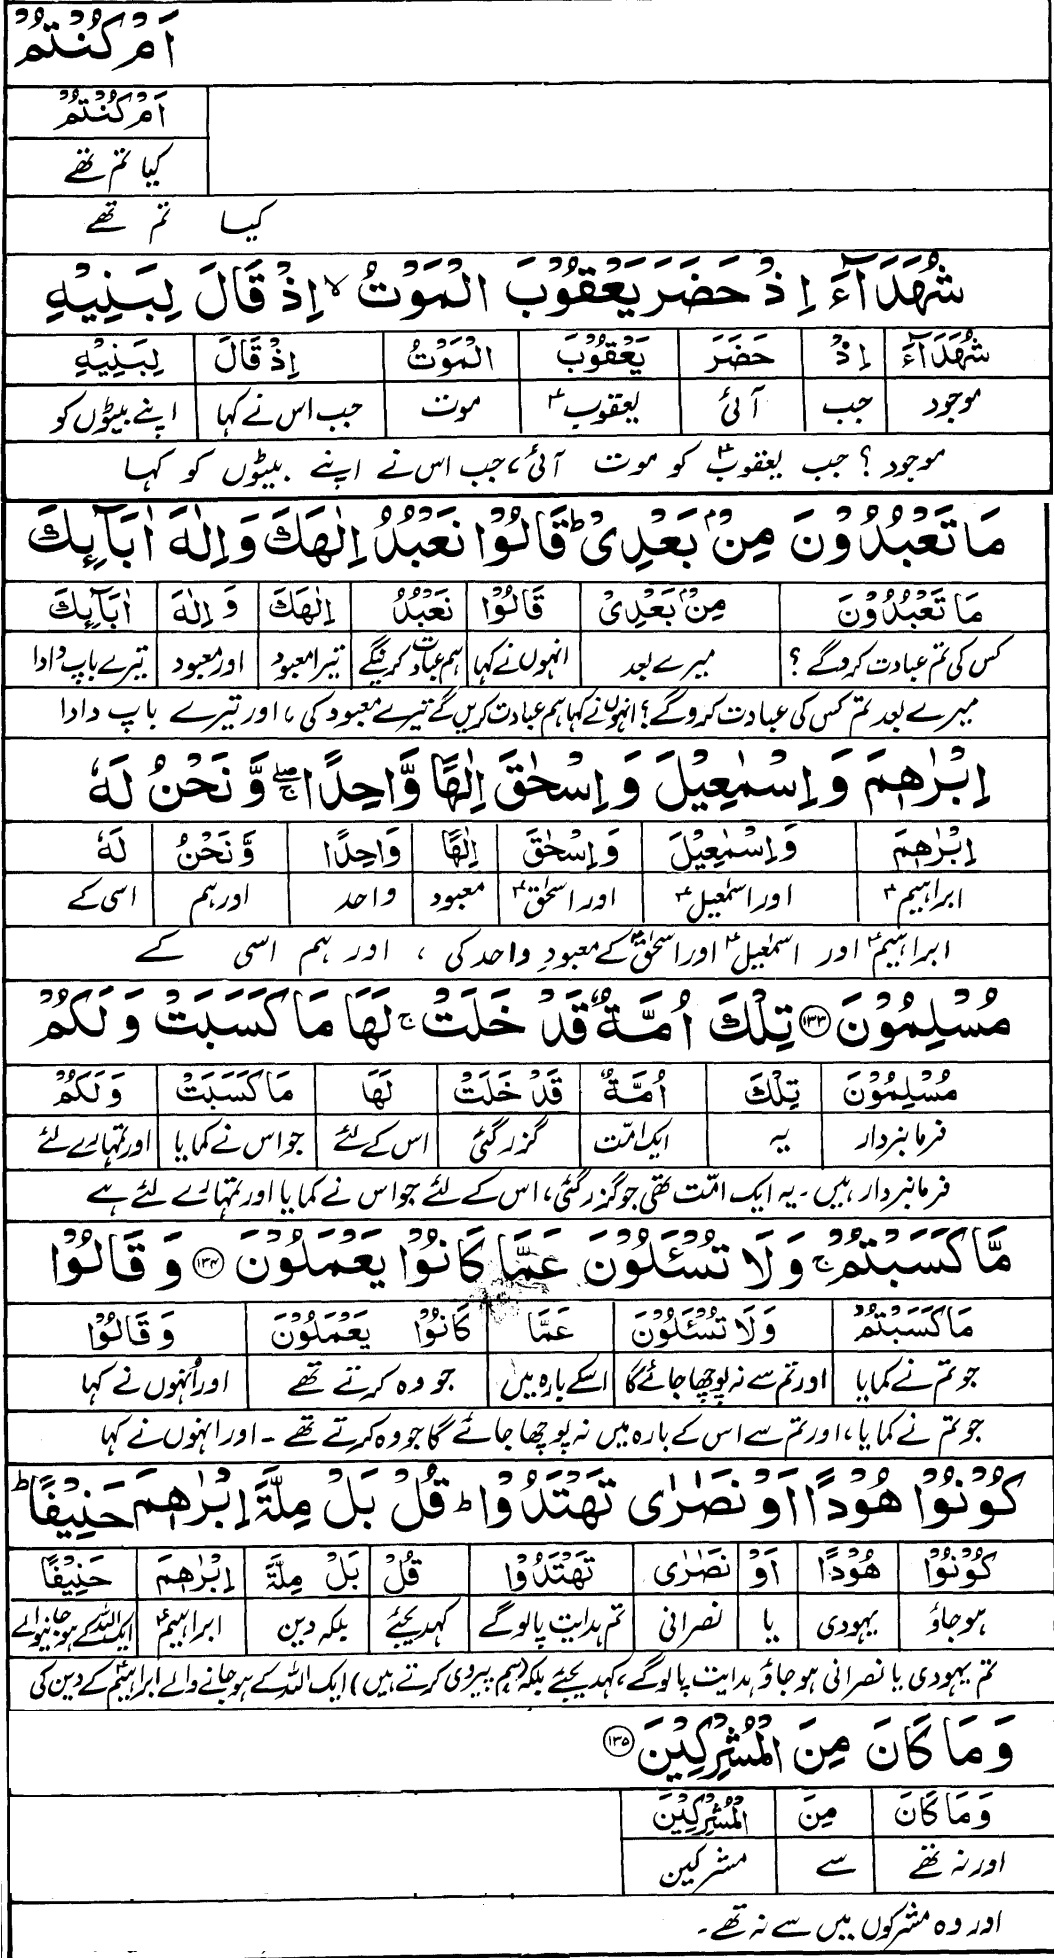 اَمْ كُنْتُمْ
اَمْ كُنْتُمْ
کیا تم تھے
کیا تم تھے
شُهَدَآءَ اِذْ حَضَرَ يَعْقُوْبَ الْمَوْتُ ۙ اِذْ قَالَ لِبَنِيْهِ
شُهَدَآءَ اِذْ حَضَرَ يَعْقُوْبَ الْمَوْتُ اِذْ قَالَ لِبَنِيْهِ
موجود جب آئی یعقوبؑ موت جب اس نے کہا اپنے بیٹوں کو
موجود ؟ جب یعقوبؑ کو موت آئی، جب اس نے اپنے بیٹوں کو کہا
مَا تَعْبُدُوْنَ مِنْۢ بَعْدِىْ ؕ قَالُوْا نَعْبُدُ اِلٰهَكَ وَ اِلٰهَ اٰبَآئِكَ
مَا تَعْبُدُوْنَ مِنْۢ بَعْدِىْ قَالُوْا نَعْبُدُ اِلٰهَكَ وَ اِلٰهَ اٰبَآئِكَ
کس کی تم عبادت کروگے ؟ میرے بعد انہوں نے کہا ہم عبادت کرینگے تیرا معبود اور معبود تیرے باپ دادا
میرے بعد تم کس کی عبادت کروگے ؟ انہوں نے کہا ہم عبادت کریں گے تیرے معبود کی ، اور تیرے باپ دادا
اِبْرٰهٖمَ وَ اِسْمٰعِيْلَ وَ اِسْحٰقَ اِلٰهًا وَّاحِدًا ۖۚ وَّ نَحْنُ لَهٗ
اِبْرٰهٖمَ وَ اِسْمٰعِيْلَ وَ اِسْحٰقَ اِلٰهًا وَاحِدًا وَّ نَحْنُ لَهٗ
ابراہیمؑ اور اسمٰعیلؑ اور اسحٰقؑ معبود واحد اور ہم اسی کے
ابراہیمؑ اور اسمٰعیلؑ اور اسحٰقؑ کے معبودِ واحد کی ، اور ہم اسی کے
مُسْلِمُوْنَ ﴿۱۳۳﴾ تِلْكَ اُمَّةٌ قَدْ خَلَتْ ۚ لَهَا مَا كَسَبَتْ وَ لَكُمْ
مُسْلِمُوْنَ تِلْكَ اُمَّةٌ قَدْ خَلَتْ لَهَا مَا كَسَبَتْ وَ لَكُمْ
فرمانبردار یہ ایک امّت گزر گئی اس کے لئے جو اس نے کمایا اور تمہارے لئے
فرمانبردار ہیں ۔ یہ ایک امّت تھی جو گزر گئی، اس کے لئے جو اس نے کمایا اور تمہارے لئے ہے
مَّا كَسَبْتُمْ ۚ وَ لَا تُسْـَٔلُوْنَ عَمَّا كَانُوْا يَعْمَلُوْنَ ﴿۱۳۴﴾ وَ قَالُوْا
مَا كَسَبْتُمْ وَ لَا تُسْـَٔلُوْنَ عَمَّا كَانُوْا يَعْمَلُوْنَ وَ قَالُوْا
جو تم نے کمایا اور تم سے نہ پوچھا جائے گا اسکے بارہ میں جو وہ کرتے تھے اور اُنہوں نے کہا
جو تم نے کمایا، اور تم سے اس کے بارہ میں نہ پوچھا جائے گا جو وہ کرتے تھے ۔ اور انہوں نے کہا
كُوْنُوْا هُوْدًا اَوْ نَصٰرٰى تَهْتَدُوْا ؕ قُلْ بَلْ مِلَّةَ اِبْرٰهٖمَ حَنِيْفًا ؕ
كُوْنُوْا هُوْدًا اَوْ نَصٰرٰى تَهْتَدُوْا قُلْ بَلْ مِلَّةَ اِبْرٰهٖمَ حَنِيْفًا
ہو جاؤ یہودی یا نصرانی تم ہدایت پالوگے کہدیجئے بلکہ دین ابراہیمؑ ایک اللہ کے ہو جانیوالے
تم یہودی یا نصرانی ہو جاؤ ہدایت پالوگے، کہدیجئے بلکہ (ہم پیروی کرتے ہیں) ایک اللہ کے ہو جانے والے ابراہیمؑ کے دین کی
وَ مَا كَانَ مِنَ الْمُشْرِكِيْنَ ﴿۱۳۵﴾
وَ مَا كَانَ مِنَ الْمُشْرِكِيْنَ
اور نہ تھے سے مشرکین
اور وہ مشرکوں میں سے نہ تھے ۔